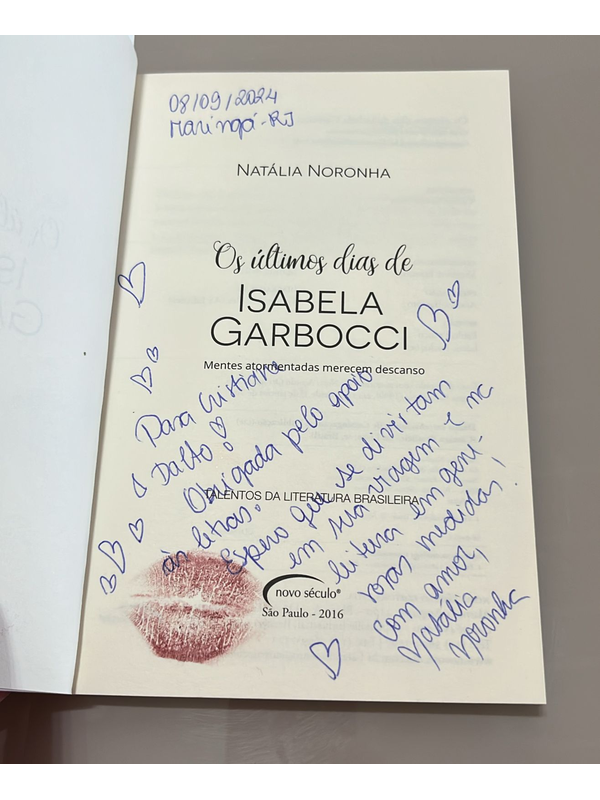 08/09/2024
Maringá-RJ
NATÁLIA NORONHA
Os últimos dias de
ISABELA
GARBOCCI
Mentes atormentadas merecem descanso
Para Cristiane
e Dalto!
Obrigada pelo apoio
às letras!
Espero que se divirtam
em sua viagem e na
leitura em gene-
rosas medidas!
Com amor,
Natália
Noronha
TALENTOS DA LITERATURA BRASILEIRA
novo século®
São Paulo - 2016